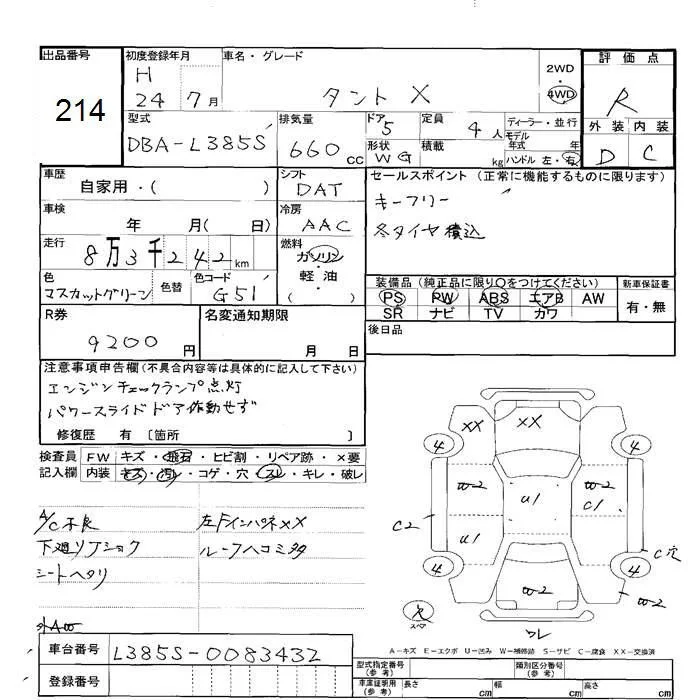 出品番号
214
初度登録年月
H
24 7月
車名・グレード
タント X
2WD
・
4WD
評価点
R
外装 内装
D C
型式
DBA-L385S
排気量
660 cc
ドア 5
形状 WG
定員 4人
積載 kg
ディーラー・並行
モデル
年式 年
ハンドル 左・右
車歴
自家用・( )
シフト
DAT
セールスポイント (正常に機能するものに限ります)
キーフリー
冬タイヤ積込
車検
年 月( 日)
冷房
AAC
走行
8万3千242km
燃料
ガソリン
・
軽・油
( )
色
マスカットグリーン
色替
色コード
G51
装備品 (純正品に限り〇をつけてください)
PS PW ABS エアB AW
SR ナビ TV カワ
新車保証書
有・無
R券
9200円
名変通知期限
月 日
後日品
注意事項申告欄(不具合内容等は具体的に記入して下さい)
エンジンチェックランプ点灯
パワースライドドア作動せず
修復歴 有 〔箇所 〕
検査員
記入欄
FW キズ・飛石・ヒビ割・リペア跡・×要
内装 キズ・汚レ・コゲ・穴・スレ・キレ・破レ
A/C不良
下廻りフショク
シートヘタリ
左FインパネXX
ルーフヘコミ多タ
XX XX
4 4
W2 U1 W2
C1
C2 U1
C穴
4 4
W2 W2
スペア
ワレ
A-キズ E-エクボ U-凹み W-補修跡 S-サビ C-腐食 XX-交換済
車台番号
L385S-0083432
登録番号
型式指定番号
(参考)
類別区分番号
(参考)
車庫証明用
(参考)
長さ cm
幅 cm
高さ cm